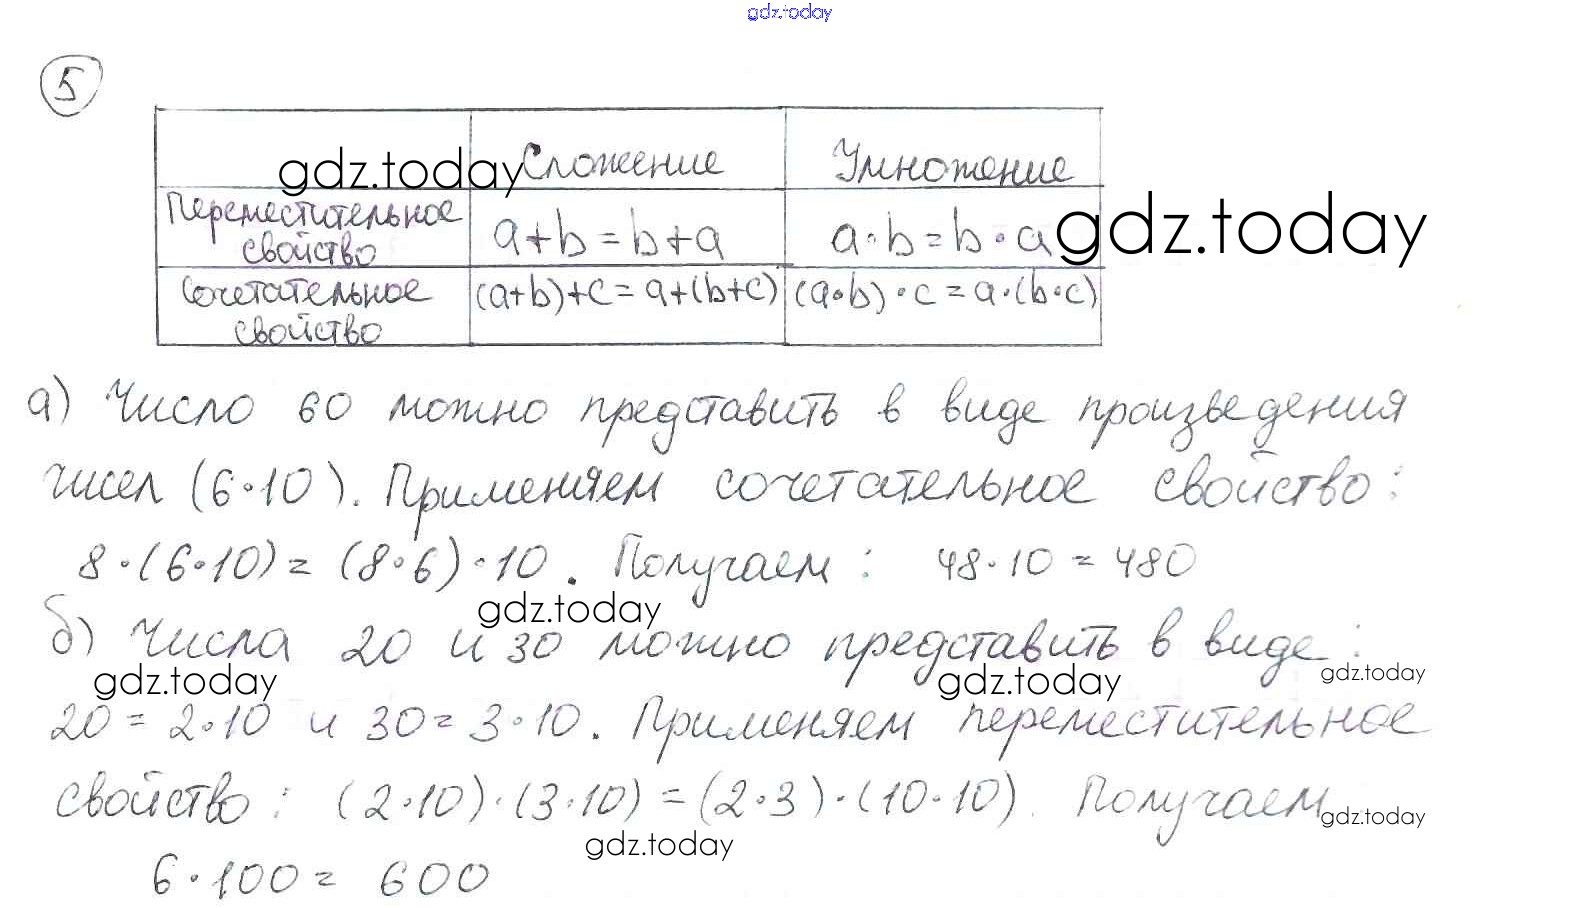 gdz.today
5
gdz.today Сложение Умножение
Переместительное свойство a+b=b+a a·b=b·a gdz.today
Сочетательное свойство (a+b)+c=a+(b+c) (a·b)·c=a·(b·c)
а) Число 60 можно представить в виде произведения
чисел (6·10). Применяем сочетательное свойство:
8·(6·10)=(8·6)·10. Получаем: 48·10=480
gdz.today
б) Числа 20 и 30 можно представить в виде:
gdz.today gdz.today gdz.today
20=2·10 и 30=3·10. Применяем переместительное
свойство: (2·10)·(3·10)=(2·3)·(10·10). Получаем
gdz.today
gdz.today
6·100=600